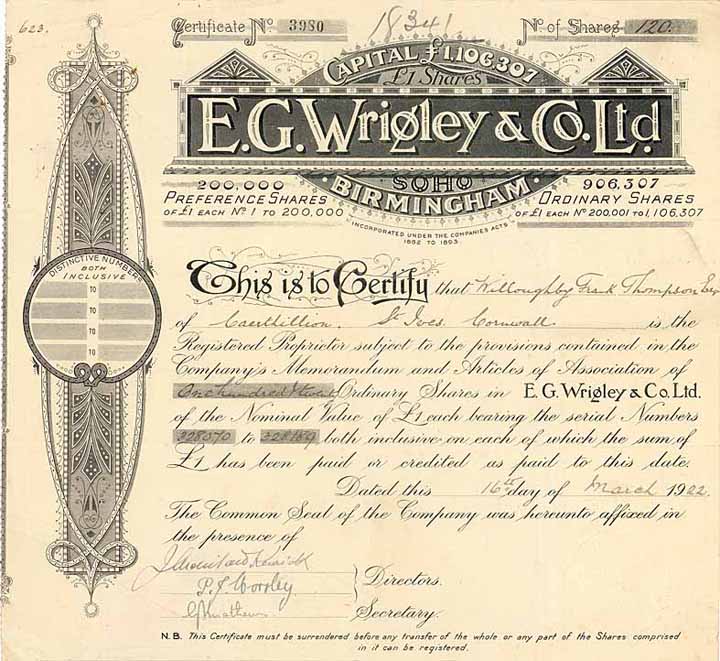 623.
Certificate No. 3980
18341
No. of Shares 120.
CAPITAL £1,106,307
£1 Shares
E.G. Wrigley & Co. Ltd.
SOHO
BIRMINGHAM
200,000
PREFERENCE SHARES
OF £1 EACH Nos 1 TO 200,000
906,307
ORDINARY SHARES
OF £1 EACH Nos 200,001 TO 1,106,307
INCORPORATED UNDER THE COMPANIES ACTS
1862 TO 1893.
DISTINCTIVE NUMBERS
BOTH
INCLUSIVE
TO
TO
TO
TO
This is to Certify that Willoughby Frank Thompson Esq
of Caerthillion, St Ives Cornwall is the
Registered Proprietor subject to the provisions contained in the
Company's Memorandum and Articles of Association of
One hundred & twenty Ordinary Shares in E. G. Wrigley & Co. Ltd.
of the Nominal Value of £1 each bearing the serial Numbers
328070 to 328189 both inclusive on each of which the sum of
£1 has been paid or credited as paid to this date.
Dated this 16th day of March 1922
The Common Seal of the Company was hereunto affixed in
the presence of
Directors.
Secretary.
N.B. This Certificate must be surrendered before any transfer of the whole or any part of the Shares comprised
in it can be registered.